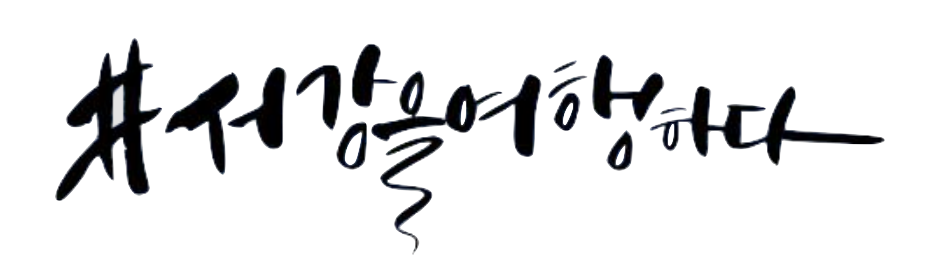 #서감을여행하다